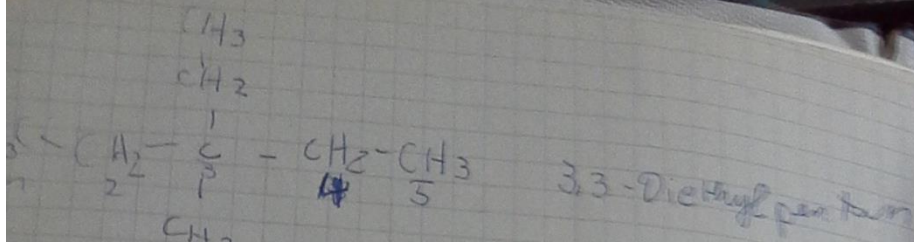 CH3
CH2
CH2 - C - CH2 - CH3
2 3 4 5
3,3-Diethylpentan
CH2